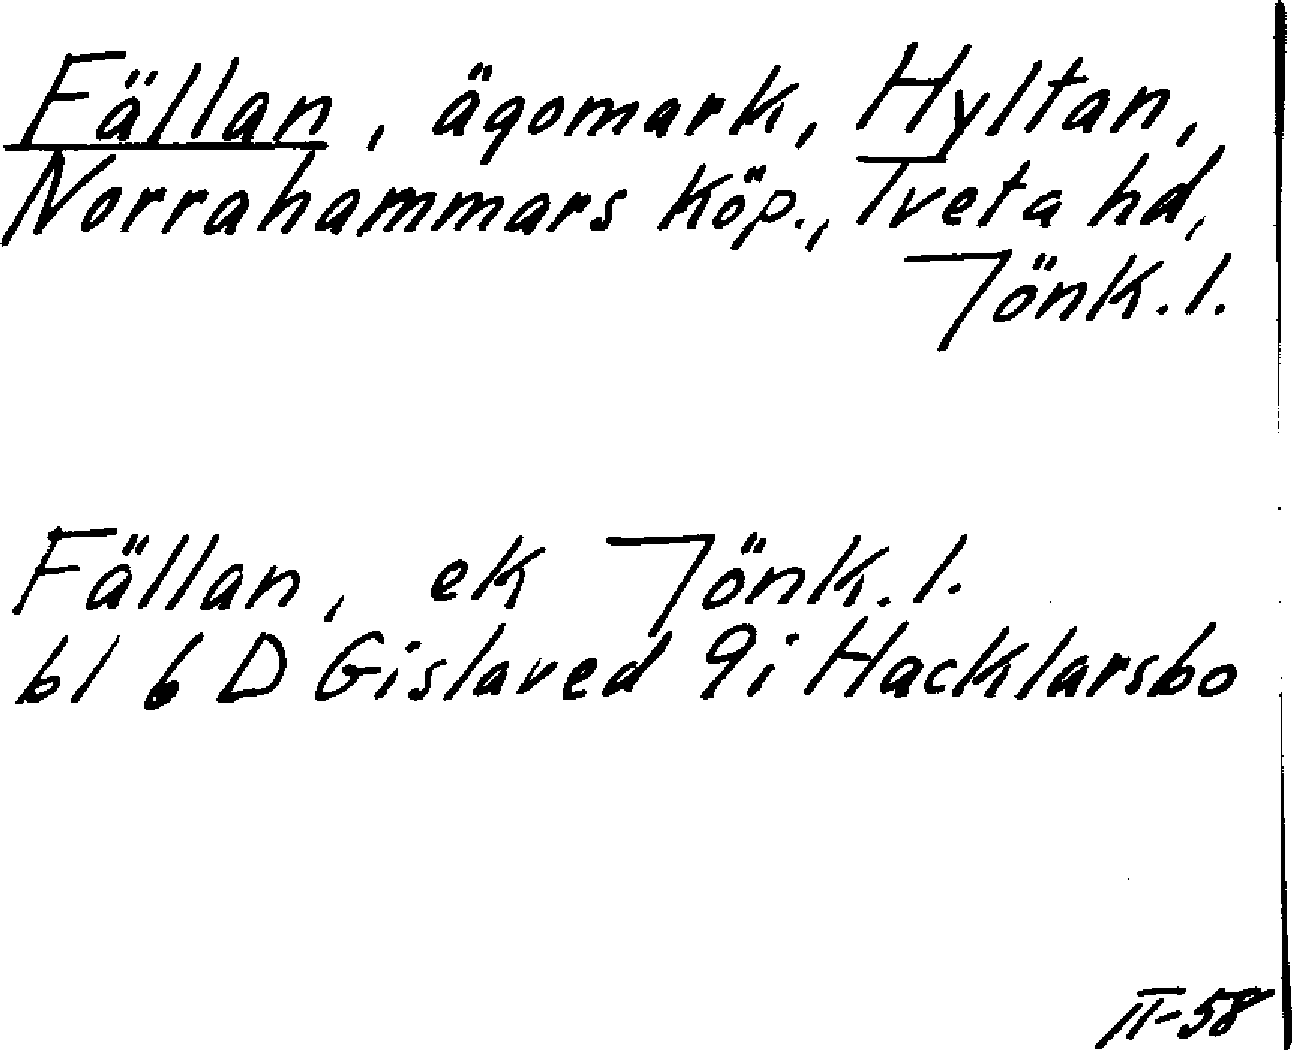 Fällan, ägomark, Hyltan,
Norrahammars köp., Tveta hd,
Jönk.l.
Fällan, ek Jönk.l.
bl 6 D Gislaved 9i Hacklarsbo
II-58